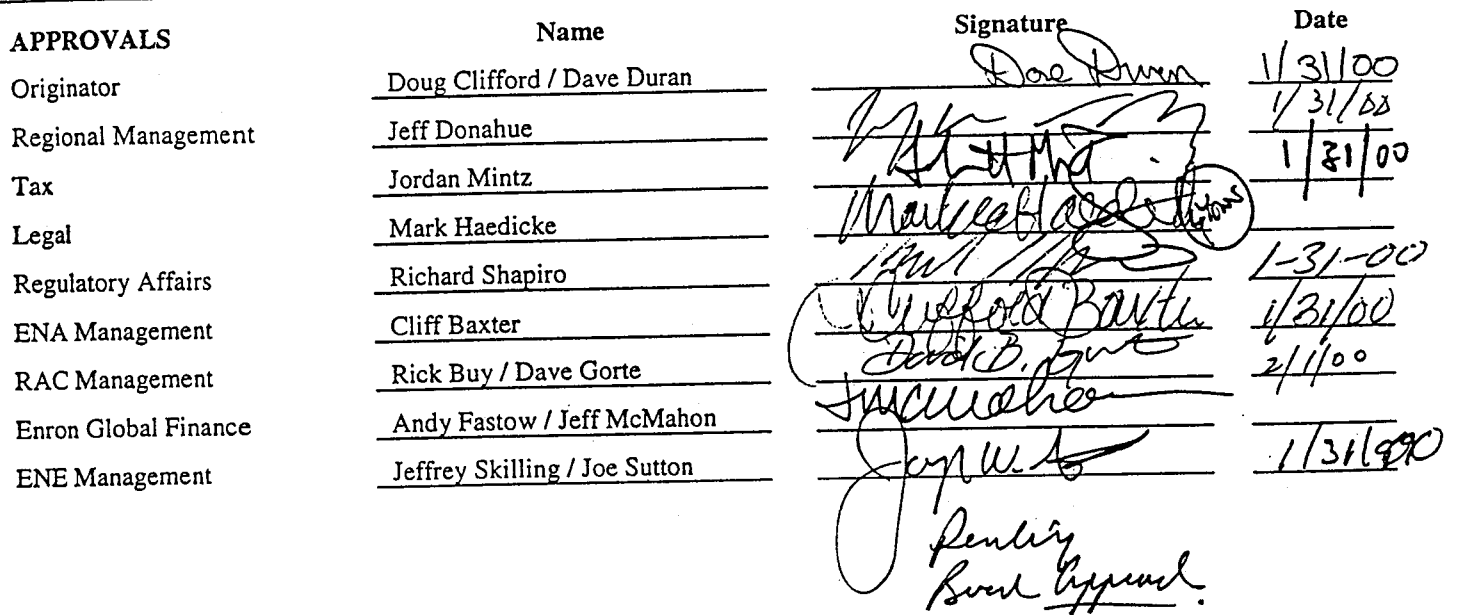 APPROVALS Name Signature Date
Originator Doug Clifford / Dave Duran Dave Duran 1/31/00
Regional Management Jeff Donahue 1/31/00
Tax Jordan Mintz 1/31/00
Legal Mark Haedicke Mark Haedicke
Regulatory Affairs Richard Shapiro 1-31-00
ENA Management Cliff Baxter Clifford Baxter 1/31/00
RAC Management Rick Buy / Dave Gorte David B. Gorte 2/1/00
Enron Global Finance Andy Fastow / Jeff McMahon JMcMahon
ENE Management Jeffrey Skilling / Joe Sutton Joseph W. 1/31/00
Pending
Board Approval.